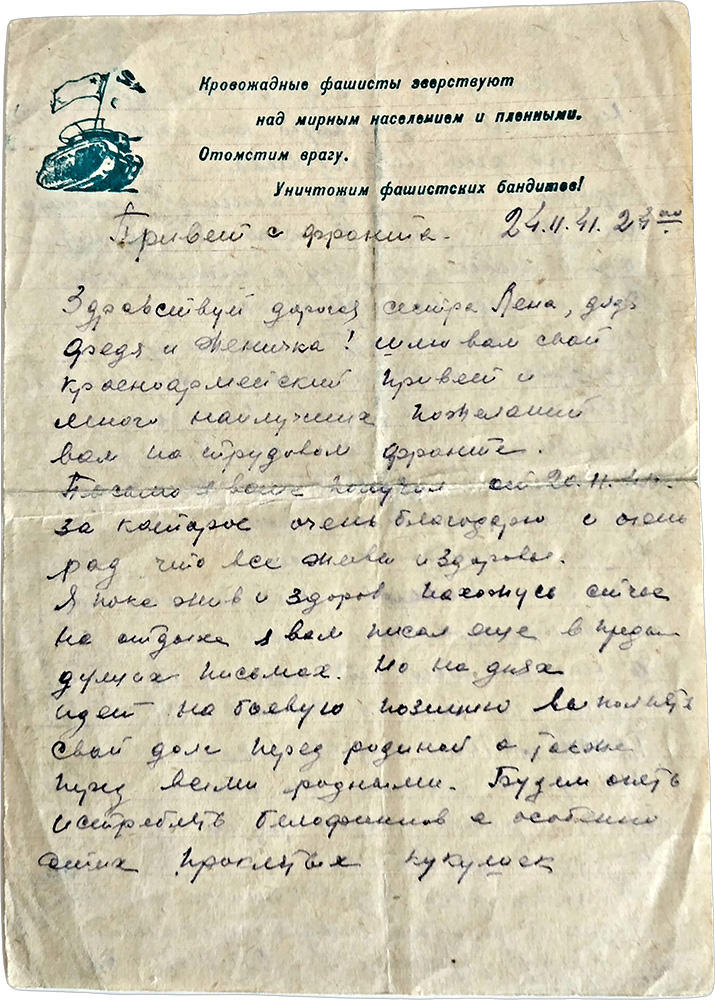 Кровожадные фашисты зверствуют
над мирным населением и пленными.
Отомстим врагу.
Уничтожим фашистских бандитов!
Привет с фронта. 24.11.41. 23 00
Здравствуй дорогая сестра Лена, дядя
Федя и Женичка! шлю вам свой
красноармейский привет и
много наилучших пожеланий
вам на трудовом фронте.
Письмо я ваше получил от 20.11.41.
за которое очень благодарю и очень
рад что все живы и здоровы.
Я пока жив и здоров нахожусь сейчас
на отдыхе я вам писал еще в преды-
дущих письмах. Но на днях
идем на боевую позицию выполнять
свой долг перед родиной а также
перед всеми родными. Будем опять
истреблять белофиннов а особенно
этих проклятых кукушек